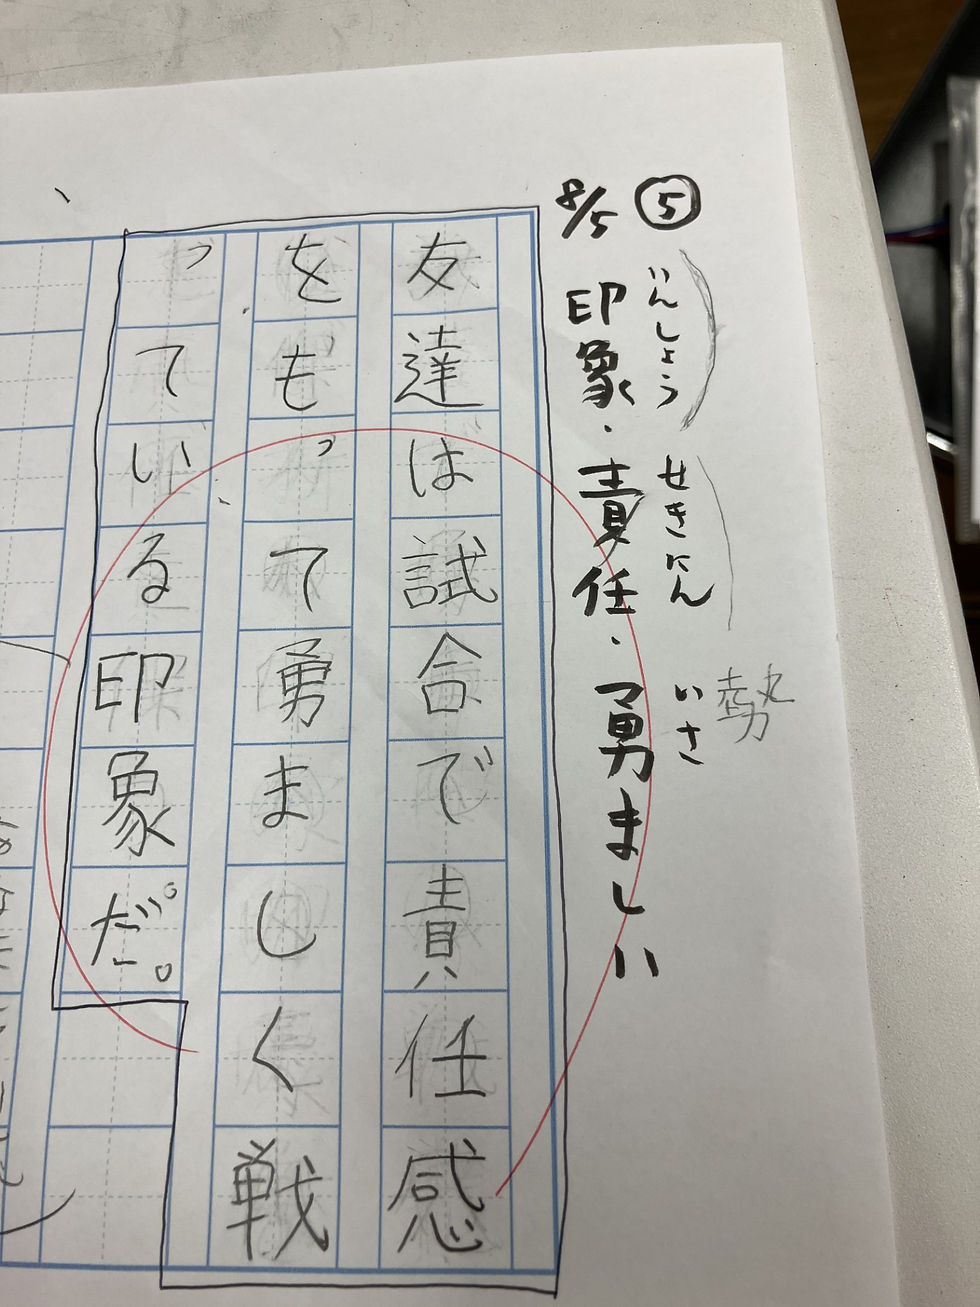 勢
⑤ いんしょう せきにん いさ
8/5 印象・責任・勇ましい
友達は試合で責任感
をもって勇ましく戦
っている印象だ。